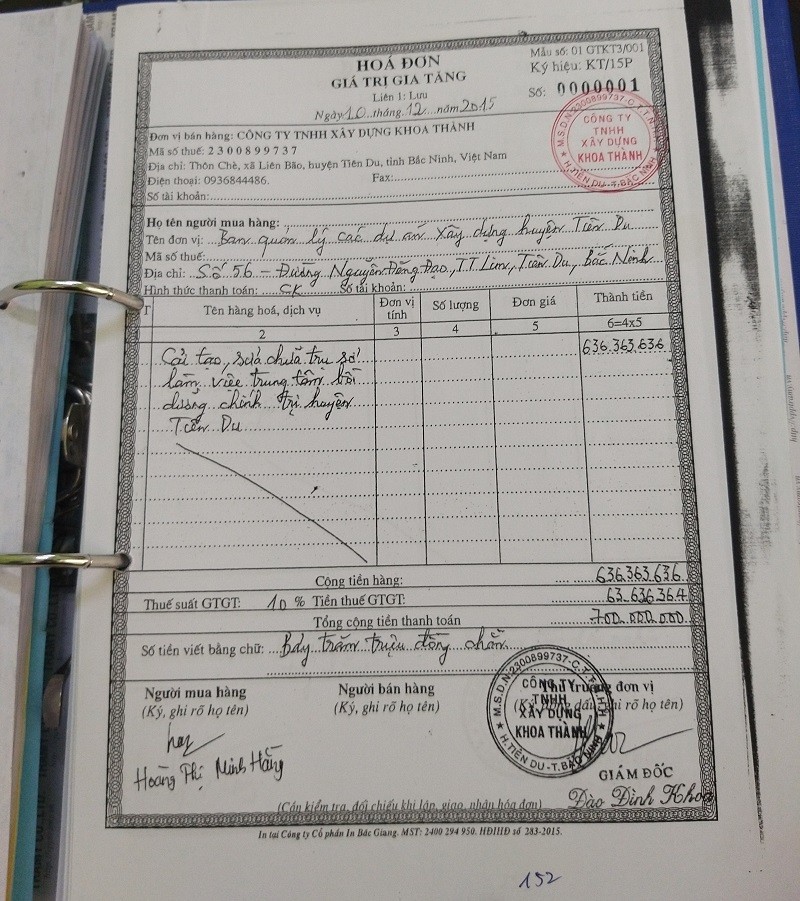 HOÁ ĐƠN
GIÁ TRỊ GIA TĂNG
Liên 1: Lưu
Ngày 10 tháng 12 năm 2015
Mẫu số: 01 GTKT3/001
Ký hiệu: KT/15P
Số: 0000001
M.S.D.N:2300899737-C.T.
CÔNG TY
TNHH
XÂY DỰNG
KHOA THÀNH
H.TIÊN DU-T.BẮC NINH
Đơn vị bán hàng: CÔNG TY TNHH XÂY DỰNG KHOA THÀNH
Mã số thuế: 2300899737
Địa chỉ: Thôn Chè, xã Liên Bão, huyện Tiên Du, tỉnh Bắc Ninh, Việt Nam
Điện thoại: 0936844486. Fax:
Số tài khoản:
Họ tên người mua hàng:
Tên đơn vị: Ban quản lý các dự án xây dựng huyện Tiên Du
Mã số thuế:
Địa chỉ: Số 56 - Đường Nguyễn Đăng Đạo, TT Lim, Tiên Du, Bắc Ninh
Hình thức thanh toán: CK Số tài khoản:
T Tên hàng hoá, dịch vụ Đơn vị tính Số lượng Đơn giá Thành tiền
2 3 4 5 6=4x5
Cải tạo, sửa chữa trụ sở 636.363.636
làm việc trung tâm bồi
dưỡng chính trị huyện
Tiên Du
Cộng tiền hàng: 636.363.636
Thuế suất GTGT: 10 % Tiền thuế GTGT: 63.636.364
Tổng cộng tiền thanh toán 700.000.000
Số tiền viết bằng chữ: Bảy trăm triệu đồng chẵn
Người mua hàng Người bán hàng Thủ trưởng đơn vị
(Ký, ghi rõ họ tên) (Ký, ghi rõ họ tên) (Ký, đóng dấu, ghi rõ họ tên)
M.S.D.N:2300899737-C.T.T.N.H.H
CÔNG TY
TNHH
XÂY DỰNG
KHOA THÀNH
H.TIÊN DU-T.BẮC NINH
Hoàng Thị Minh Hằng
GIÁM ĐỐC
Đào Đình Khoa
(Cần kiểm tra, đối chiếu khi lập, giao, nhận hóa đơn)
In tại Công ty Cổ phần In Bắc Giang. MST: 2400 294 950. HĐIHĐ số 283-2015.
152